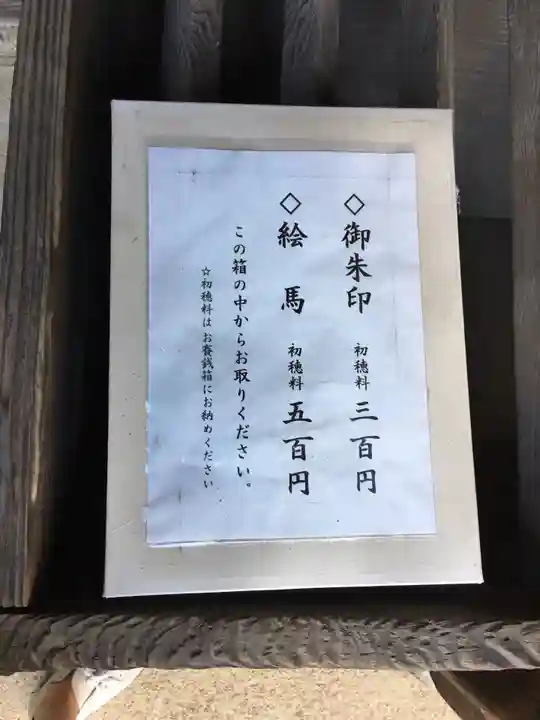 ◇御朱印 初穂料 三百円
◇絵馬 初穂料 五百円
この箱の中からお取りください。
☆初穂料はお賽銭箱にお納めください